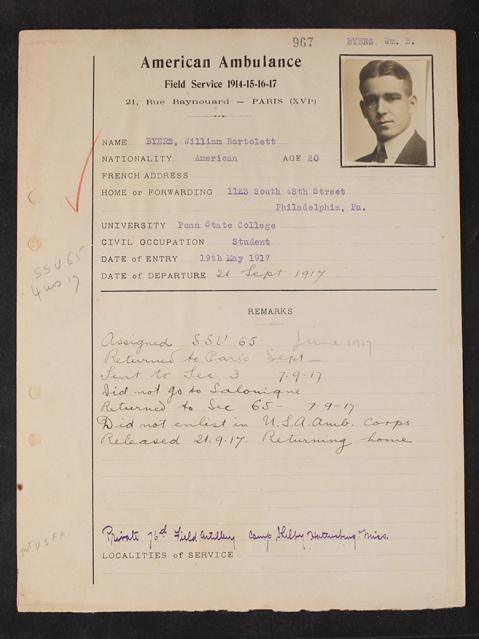 967
BYERS, Wm. B.
American Ambulance
Field Service 1914-15-16-17
21, Rue Raynouard — PARIS (XVIᵉ)
NAME BYERS, William Bartolett
NATIONALITY American AGE 20
FRENCH ADDRESS
HOME or FORWARDING 1123 South 48th Street
Philadelphia, Pa.
UNIVERSITY Penn State College
CIVIL OCCUPATION Student
DATE of ENTRY 19th May 1917
DATE of DEPARTURE 21 Sept 1917
SSU 65
REMARKS
Assigned SSU 65 June 1917
Returned to Paris Sept —
Sent to Sec. 3 7-9-17
Did not go to Salonique
Returned to Sec 65 - 7-9-17
Did not enlist in U.S.A. Amb. Corps
Released 21.9.17. Returning home
Private 76th Field Artillery Camp Shelby Miss.
LOCALITIES of SERVICE